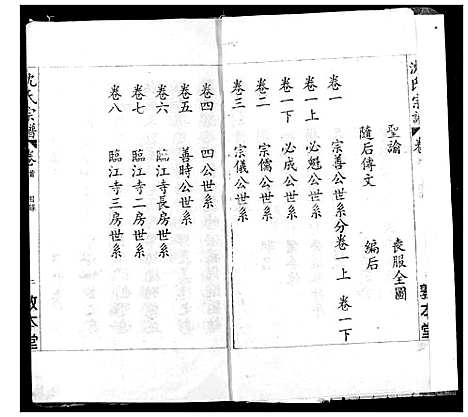 沈氏宗譜 卷
聖諭 喪服全圖
隨后傳文 編后
卷一 宗善公世系分卷一上 卷一下
卷一上 必魁公世系
卷一下 必成公世系
卷二 宗儒公世系
卷三 宗儀公世系
敦本堂
卷四 四公世系
卷五 善時公世系
卷六 臨江寺長房世系
卷七 臨江寺二房世系
卷八 臨江寺三房世系
沈氏宗譜 卷首 目錄 二 敦本堂